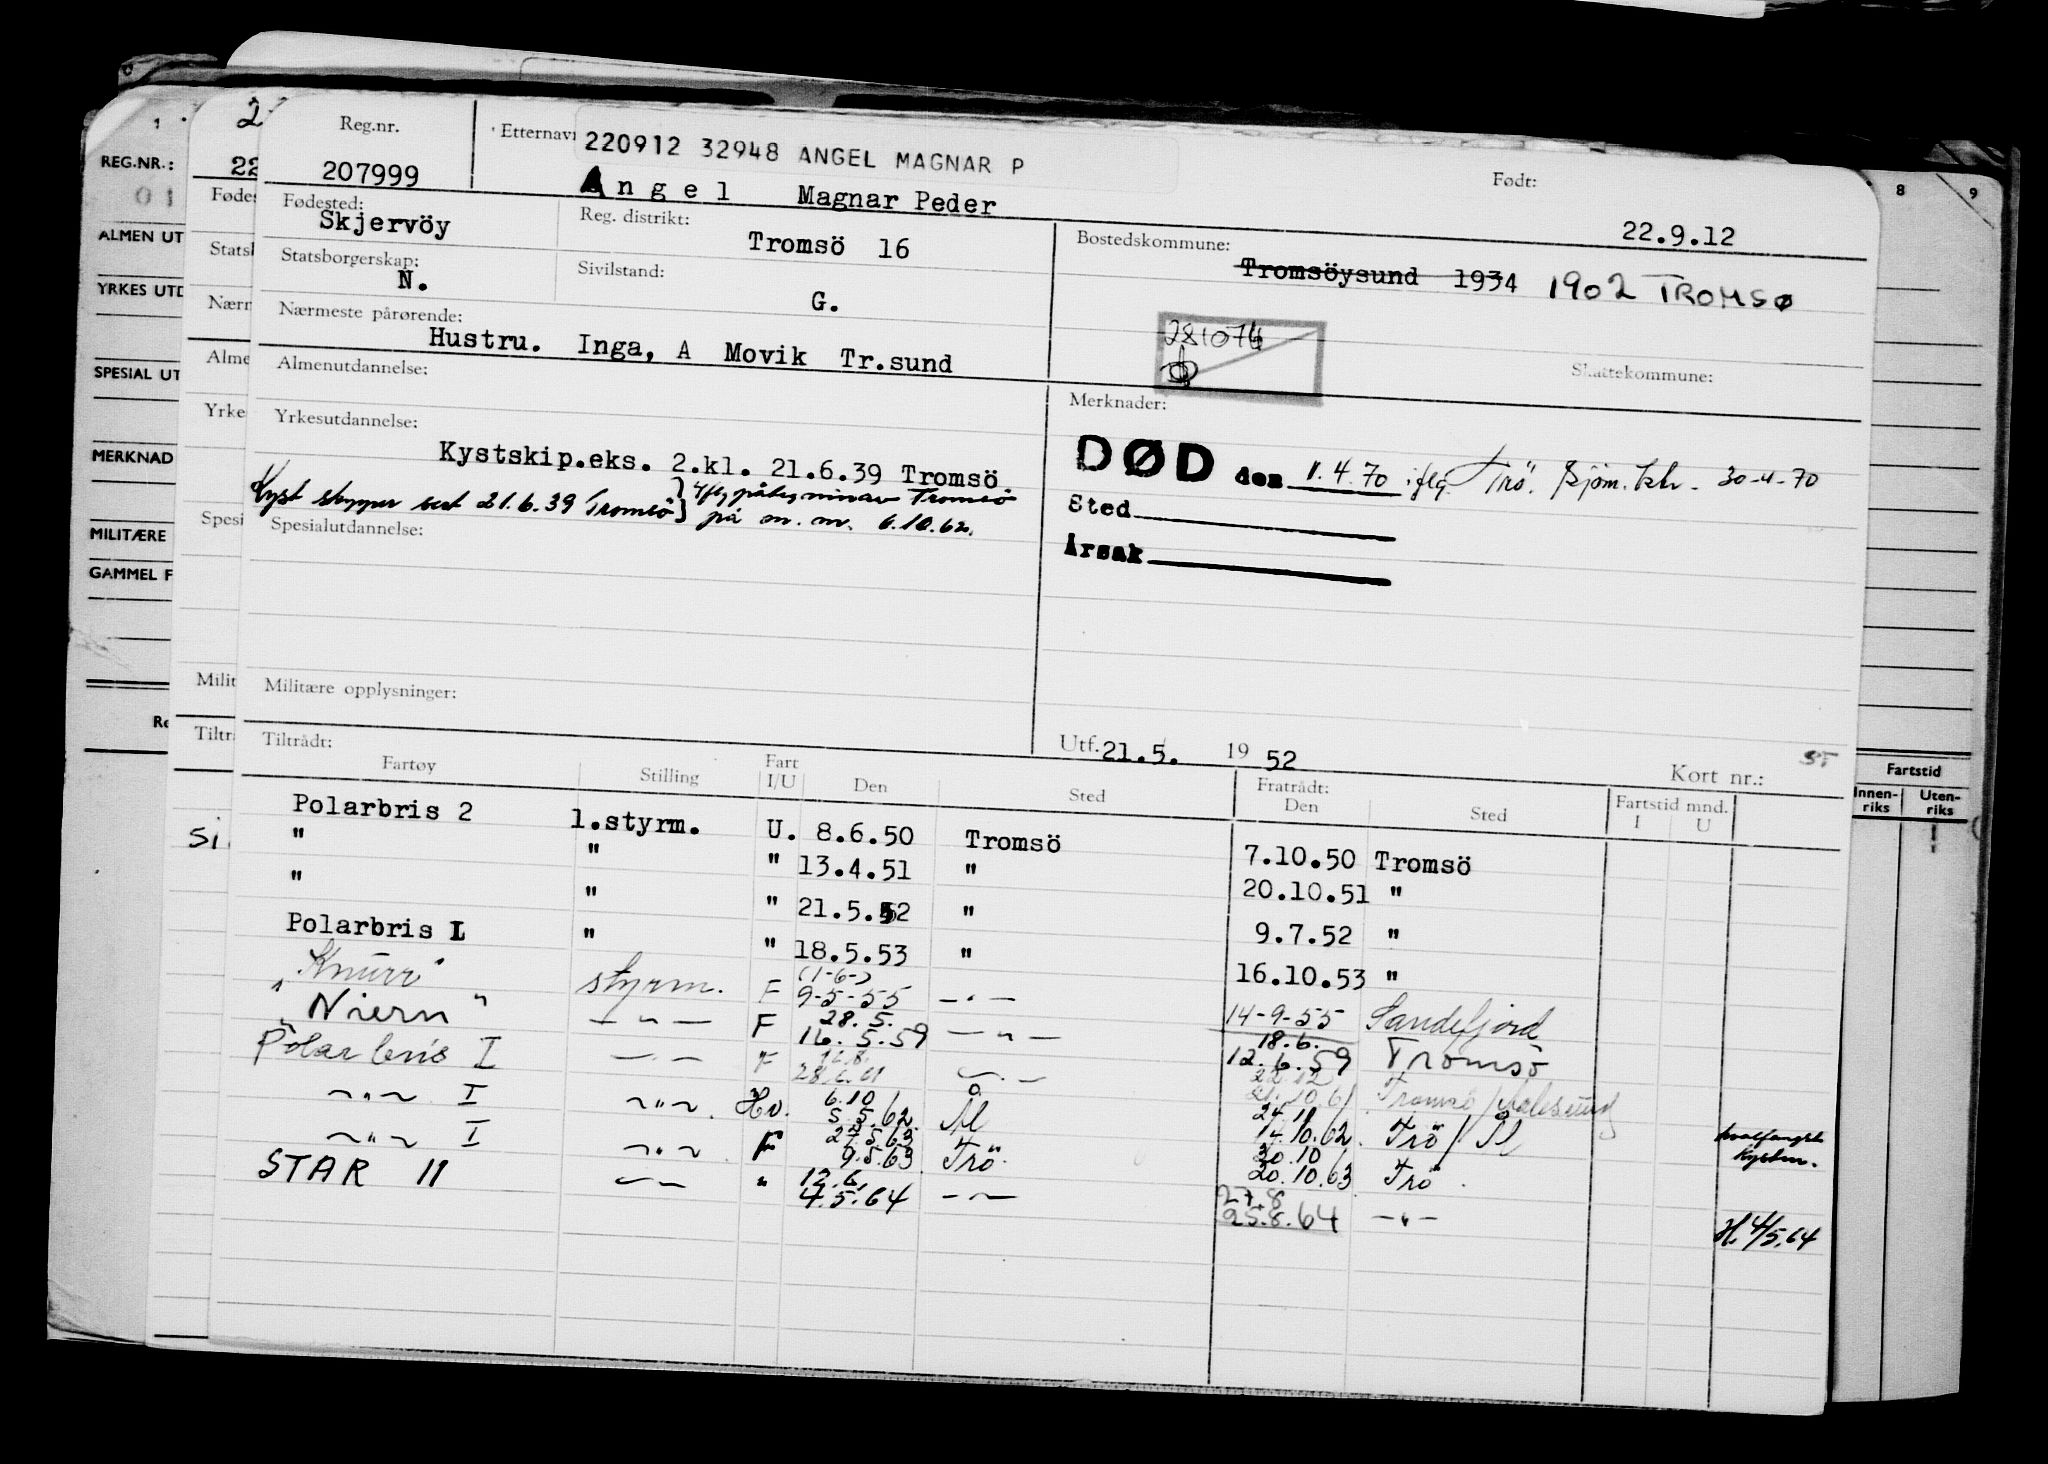 Reg.nr. Etternavn 220912 32948 ANGEL MAGNAR P
207999 Angel Magnar Peder Født: 22.9.12
Fødested: Skjervöy Reg. distrikt: Tromsö 16 Bostedskommune: Tromsöysund 1934 1902 TROMSØ
Statsborgerskap: N. Sivilstand: G.
Nærmeste pårørende: Hustru. Inga, A Movik Tr.sund
281074
Skattekommune:
Almenutdannelse: Merknader:
Yrkesutdannelse: Kystskip.eks. 2.kl. 21.6.39 Tromsö
Kyst skipper sert 21.6.39 Tromsö } Tromsö
på m.m. 6.10.62.
DØD den 1.4.70 iflg. Trö. 30-4-70
Sted
Årsak
Spesialutdannelse:
Militære opplysninger:
Utf. 21.5. 19 52 Kort nr.:
Tiltrådt: Fratrådt:
Fartøy Stilling Fart I/U Den Sted Den Sted Fartstid mnd. I U
Polarbris 2 1.styrm. U. 8.6.50 Tromsö 7.10.50 Tromsö
" " " 13.4.51 " 20.10.51 "
" " " 21.5.52 " 9.7.52 "
Polarbris I " " 18.5.53 " 16.10.53 "
"Knurr" styrm. F (1-6-) 9-5-55 -"- 14-9-55 Sandefjord
"Niern" -"- F 28.5. 16.5.59 -"- 18.6. 12.6.59 Tromsö
Polarbris I -"- F 28.6.61 -"- 21.10.61 Tromsö
-"- I -"- Hv. 6.10 5.5.62 Ål 24.11 14.10.62 Trö / Ål
-"- I -"- F 27.5.63 9.5.63 Trö 30.10 20.10.63 Trö
STAR II -"- " 12.6. 4.5.64 -"- 27.8 25.8.64 -"- H. 4/5.64
REG.NR.:
ALMEN UT
YRKES UTD
SPECIAL UT
MERKNAD
MILITÆRE
GAMMEL F
Fartstid
Innenriks Utenriks
8 9